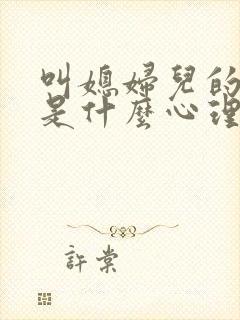 叫媳婦兒的
是什麼心理
許棠